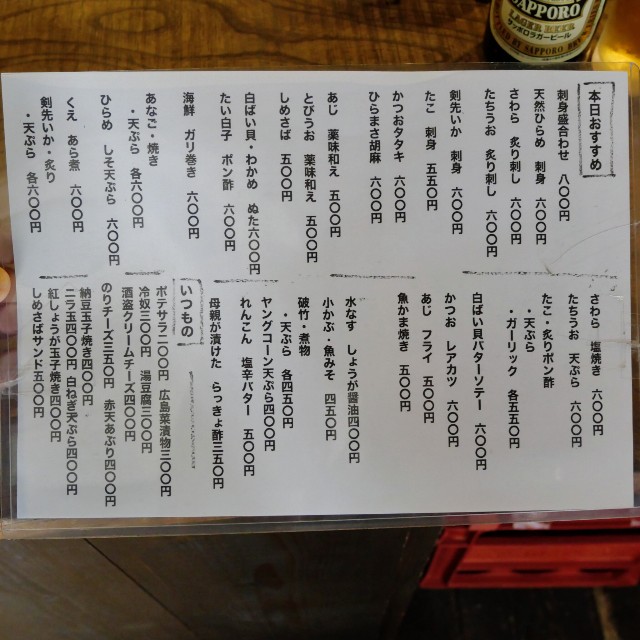 SAPPORO
LAGER BEER
サッポロラガービール
本日おすすめ
刺身盛合わせ 八〇〇円
天然ひらめ 刺身 六〇〇円
さわら 炙り刺し 六〇〇円
たちうお 炙り刺し 六〇〇円
剣先いか 刺身 六〇〇円
たこ 刺身 五五〇円
かつおタタキ 六〇〇円
ひらまさ胡麻 六〇〇円
あじ 薬味和え 五〇〇円
とびうお 薬味和え 五〇〇円
しめさば 五〇〇円
白ばい貝・わかめ ぬた六〇〇円
たい白子 ポン酢 六〇〇円
海鮮 ガリ巻き 六〇〇円
あなご・焼き
・天ぷら 各六〇〇円
ひらめ しそ天ぷら 六〇〇円
くえ あら煮 六〇〇円
剣先いか・炙り
・天ぷら 各六〇〇円
さわら 塩焼き 六〇〇円
たちうお 天ぷら 六〇〇円
たこ・炙りポン酢
・天ぷら
・ガーリック 各五五〇円
白ばい貝バターソテー 六〇〇円
かつお レアカツ 六〇〇円
あじ フライ 五〇〇円
魚かま焼き 五〇〇円
水なす しょうが醤油四〇〇円
小かぶ・魚みそ 四五〇円
破竹・煮物
・天ぷら 各四五〇円
ヤングコーン天ぷら四〇〇円
れんこん 塩辛バター 五〇〇円
母親が漬けた らっきょ酢三五〇円
いつもの
ポテサラ二〇〇円 広島菜漬物三〇〇円
冷奴三〇〇円 湯豆腐三〇〇円
酒盗クリームチーズ四〇〇円
のりチーズ三五〇円 赤天あぶり四〇〇円
納豆玉子焼き四〇〇円
ニラ玉四〇〇円 白ねぎ天ぷら四〇〇円
紅しょうが玉子焼き四〇〇円
しめさばサンド五〇〇円